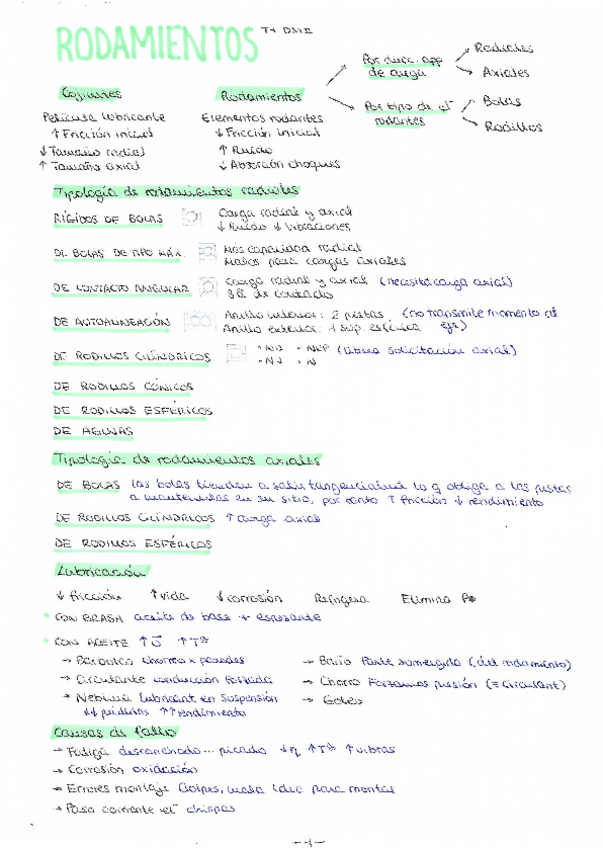 RODAMIENTOS T4 DMII
Cojinetes
Película lubricante
↑ Fricción inicial
↓ Tamaño radial
↑ Tamaño axial
Rodamientos
Elementos rodantes
↓ Fricción inicial
↑ Ruido
↓ Absorción choques
Por direc. app de carga → Radiales → Axiales
Por tipo de elᵗ rodantes → Bolas → Rodillos
Tipología de rodamientos radiales
RÍGIDOS DE BOLAS Carga radial y axial
↓ Ruido ↓ Vibraciones
DE BOLAS DE TIPO MÁX. Más capacidad radial
Malos para cargas axiales
DE CONTACTO ANGULAR Carga radial y axial (necesita carga axial)
de contacto
DE AUTOALINEACIÓN Anillo interior: 2 pistas (no transmite momento al eje)
Anillo exterior: 1 sup. esférica
DE RODILLOS CILÍNDRICOS · NU · NUP (libera solicitación axial)
· NJ · N
DE RODILLOS CÓNICOS
DE RODILLOS ESFÉRICOS
DE AGUJAS
Tipología de rodamientos axiales
DE BOLAS las bolas tienden a salir tangencialmᵗ lo q obliga a las pistas
a mantenerlas en su sitio, por tanto ↑ fricción ↓ rendimiento
DE RODILLOS CILÍNDRICOS ↑ carga axial
DE RODILLOS ESFÉRICOS
Lubricación
↓ fricción ↑ vida ↓ corrosión Refrigera Elimina
• CON GRASA aceite de base + espesante
• CON ACEITE ↑ ↑ Tª
→ Barboteo chorrea x paredes
→ Circulante conducción forzada
→ Neblina Lubricant en suspensión
↓↓ pérdidas ↑↑ rendimiento
→ Baño Parte sumergida (del rodamiento)
→ Chorro Forzamos presión (= circulant)
→ Goteo
Causas de fallo
→ Fatiga desconchado... picado ↓η ↑Tª ↑ vibras
→ Corrosión oxidación
→ Errores montaje Golpes, mala idea para montar
→ Paso corriente elᵗ chispas
-1-